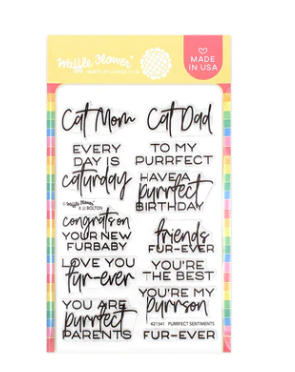 Waffle Flower®
MADE
IN USA
Cat Mom
Cat Dad
EVERY
DAY IS
caturday
TO MY
PURRFECT
HAVE A
purrfect
BIRTHDAY
Waffle Flower
congrats on
YOUR NEW
FURBABY
friends
FUR-EVER
LOVE YOU
fur-ever
YOU'RE
THE BEST
YOU ARE
purrfect
PARENTS
YOU'RE MY
purrson
421341 PURRFECT SENTIMENTS
FUR-EVER